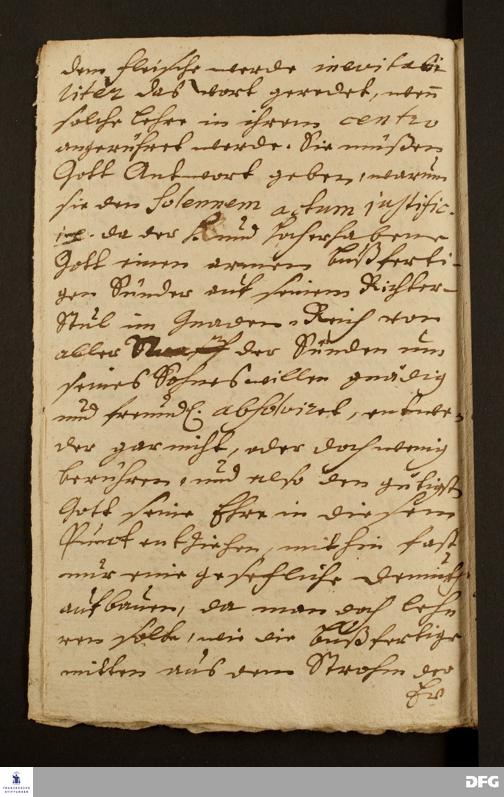 dem Fleische werde inevitabi
liter das wort geredet, weñ
solche lehre in ihrem centro
angerühret werde. Sie müßen
Gott Antwort geben, warum
sie den Solennem actum justific.
da der und hocherhabene
Gott einen armen bußferti-
gen Sünder auf seinem Richter-
Stul im Gnaden-Reich von
aller der Sünden um
seines Sohnes willen gnädig
und freundl. absolviret, entwe-
der gar nicht, oder doch wenig
berühren, und also den gütigst
Gott seine Ehre in diesem
Punct entziehen, mithin fast
nur eine gesetzliche Demuth
aufbauen, da man doch leh-
ren solte, wie die bußfertige
mitten aus dem Strohm der
FRANCKESCHE
STIFTUNGEN
DFG